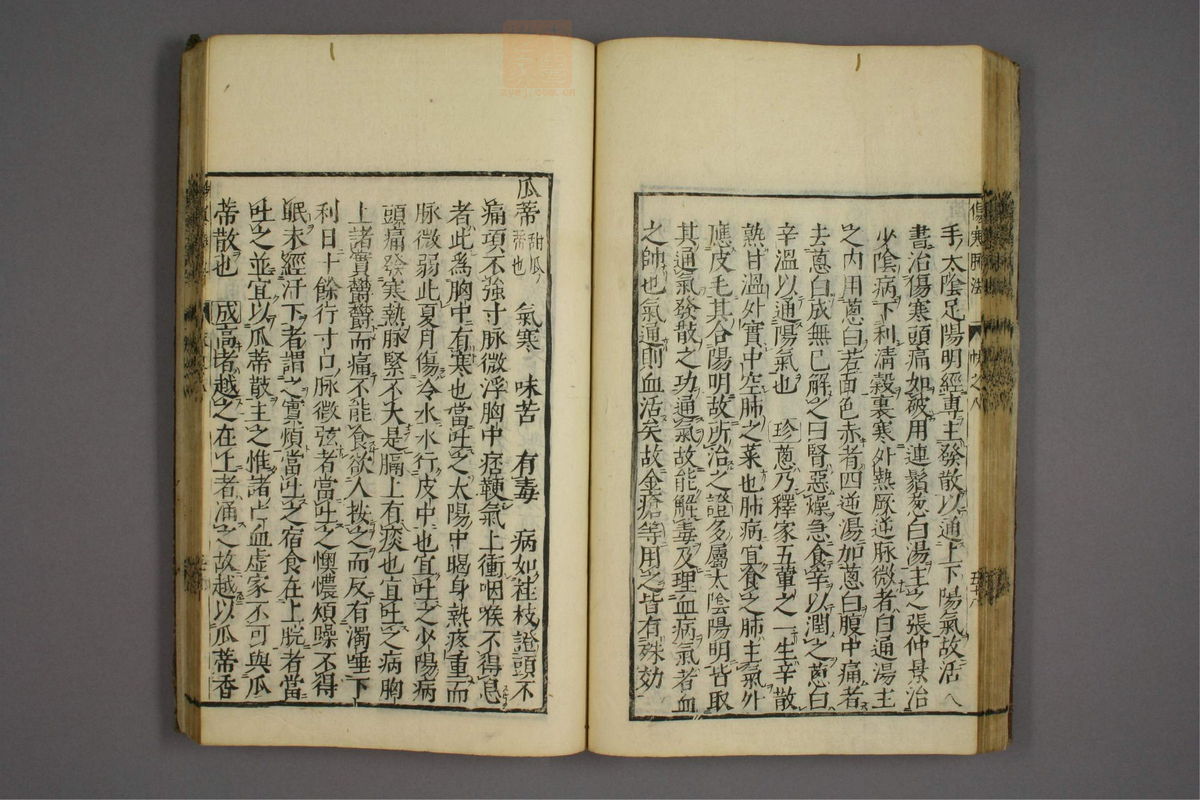 手太陰足陽明經專主發散以通上下陽氣故活人
書治傷寒頭痛如破用連鬚葱白湯主之張仲景治
少陰病下利清穀裏寒外熱厥逆脉微者白通湯主
之內用蔥白若面色赤者四逆湯加蔥白腹中痛者
去蔥白成無已解之曰腎惡燥急食辛以潤之蔥白
辛溫以通陽氣也 珍蔥乃釋家五葷之一生辛散
熟甘溫外實中空肺之菜也肺病宜食之肺主氣外
應皮毛其合陽明故所治之證多屬太陰陽明皆取
其通氣發散之功通氣故能解毒及理血病氣者血
之帥也氣通則血活矣故金瘡等用之皆有殊効
瓜蒂甜瓜蒂也 氣寒 味苦 有毒 病如桂枝證頭不
痛項不強寸脉微浮胸中痞鞕氣上衝咽喉不得息
者此爲胸中有寒也當吐之太陽中暍身熱疼重而
脉微弱此夏月傷冷水水行皮中也宜吐之少陽病
頭痛發寒熱脉緊不大是膈上有痰也宜吐之病胸
上諸實鬱鬱而痛不能食欲人按之而反有濁唾下
利日十餘行寸口脉微弦者當吐之懊憹煩躁不得
眠未經汗下者謂之實煩當吐之宿食在上脘者當
吐之並宜以瓜蒂散主之惟諸亡血虛家不可與瓜
蒂散也 成高者越之在上者涌之故越以瓜蒂香